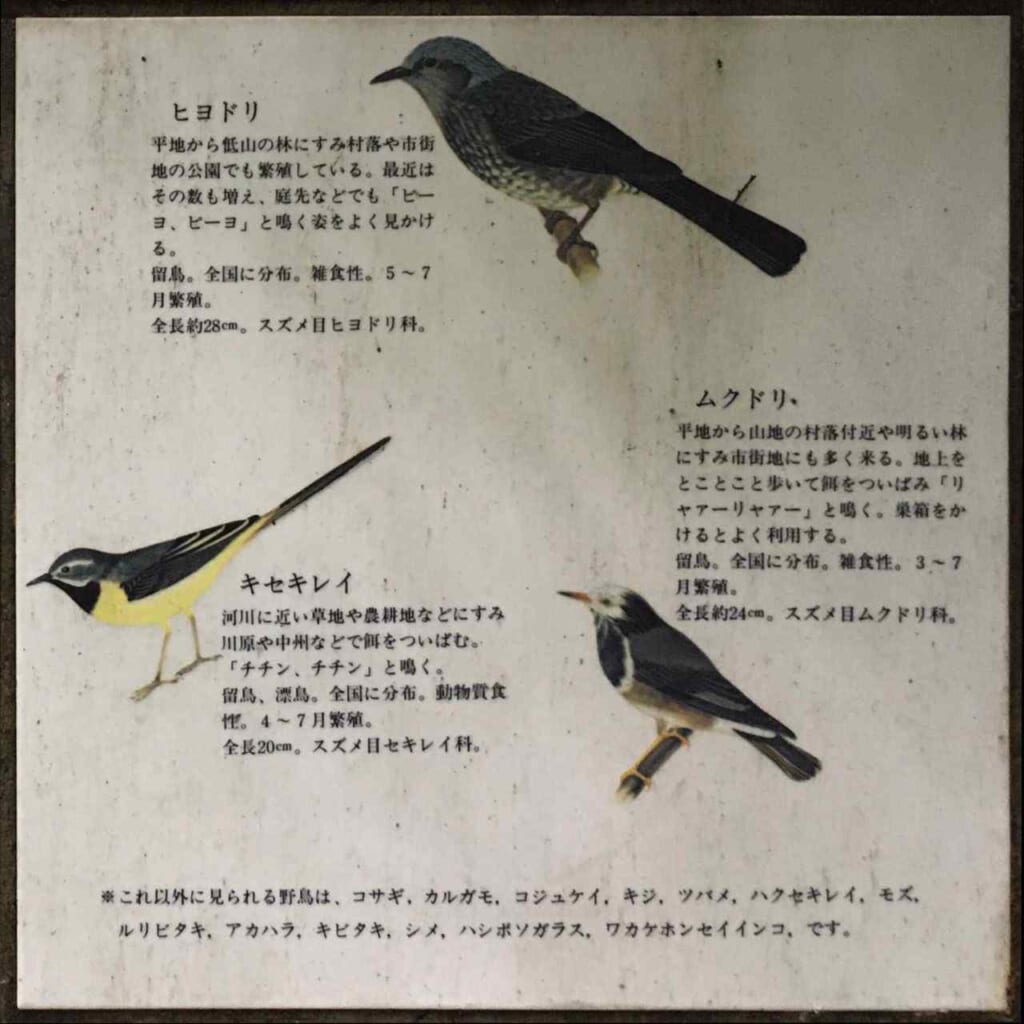 ヒヨドリ
平地から低山の林にすみ村落や市街
地の公園でも繁殖している。最近は
その数も増え、庭先などでも「ピー
ヨ、ピーヨ」と鳴く姿をよく見かけ
る。
留鳥。全国に分布。雑食性。5～7
月繁殖。
全長約28cm。スズメ目ヒヨドリ科。
ムクドリ
平地から山地の村落付近や明るい林
にすみ市街地にも多く来る。地上を
とことこと歩いて餌をついばみ「リ
ャァーリャァー」と鳴く。巣箱をか
けるとよく利用する。
留鳥。全国に分布。雑食性。3～7
月繁殖。
全長約24cm。スズメ目ムクドリ科。
キセキレイ
河川に近い草地や農耕地などにすみ
川原や中州などで餌をついばむ。
「チチン、チチン」と鳴く。
留鳥、漂鳥。全国に分布。動物質食
性。4～7月繁殖。
全長20cm。スズメ目セキレイ科。
※これ以外に見られる野鳥は、コサギ，カルガモ，コジュケイ，キジ，ツバメ，ハクセキレイ，モズ，
ルリビタキ，アカハラ，キビタキ，シメ，ハシボソガラス，ワカケホンセイインコ，です。